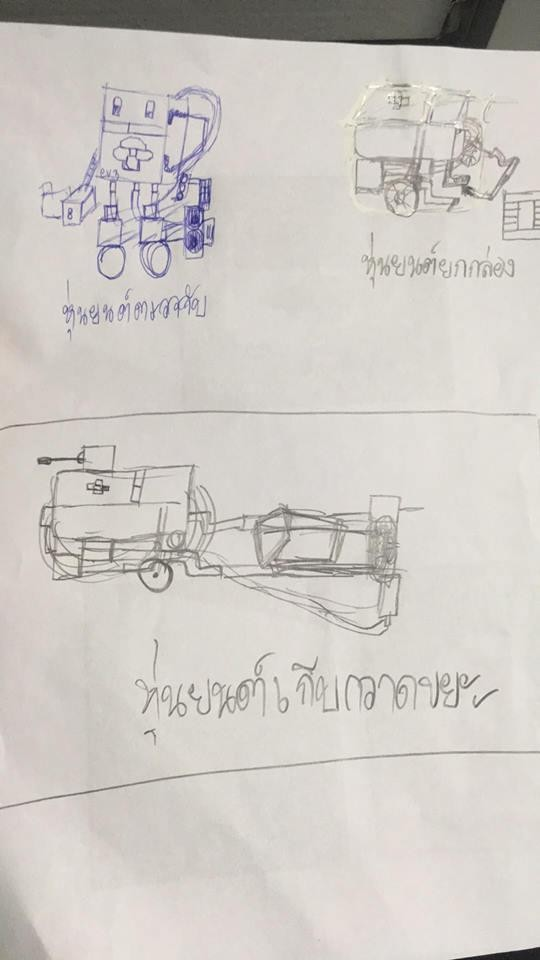 ev3
8
หุ่นยนต์ตรวจจับ
หุ่นยนต์ยกกล่อง
หุ่นยนต์เกีบกวาดขยะ